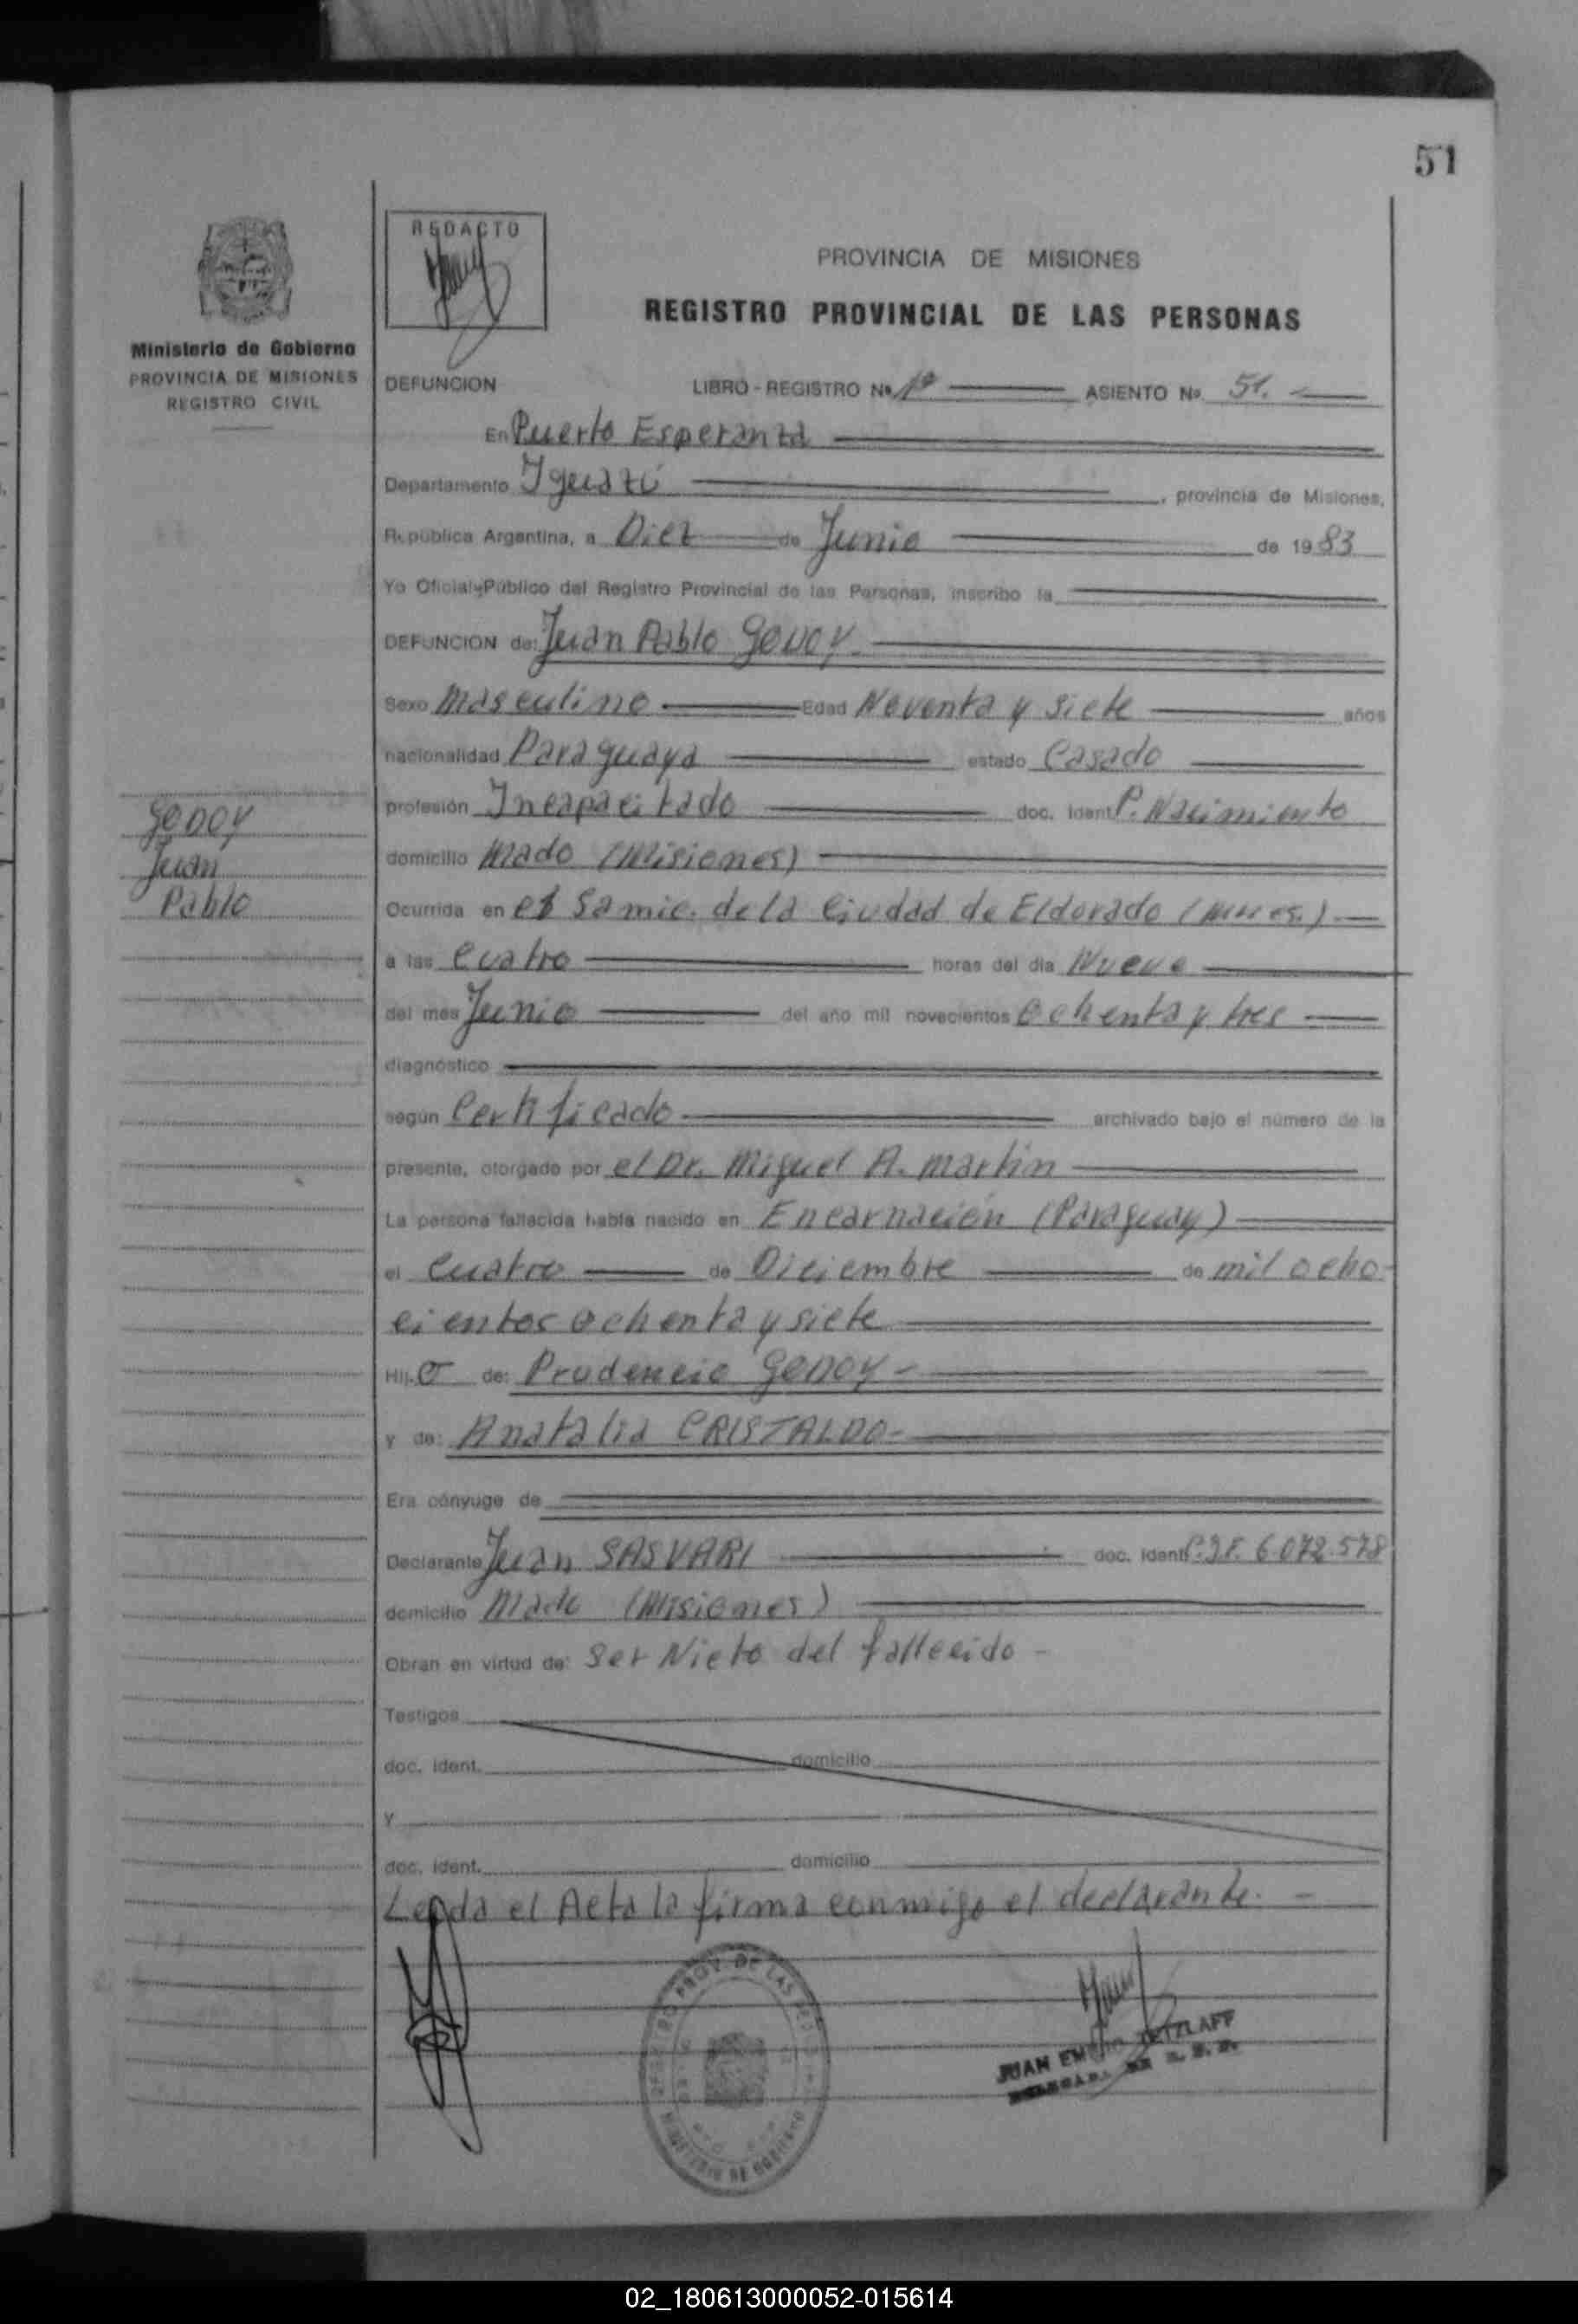 51
REDACTO
PROVINCIA DE MISIONES
REGISTRO PROVINCIAL DE LAS PERSONAS
Ministerio de Gobierno
PROVINCIA DE MISIONES
REGISTRO CIVIL
DEFUNCION LIBRO - REGISTRO No. 1º ASIENTO No. 51.
En Puerto Esperanza
Departamento Iguazú, provincia de Misiones,
República Argentina, a Diez de Junio de 1983
Yo Oficial Público del Registro Provincial de las Personas, inscribo la
DEFUNCION de: Juan Pablo GODOY
Sexo Masculino Edad Noventa y siete años
nacionalidad Paraguaya estado Casado
profesión Incapacitado doc. Ident. P. Nacimiento
Godoy
Juan
Pablo
domicilio Mado (Misiones)
Ocurrida en el Samic. de la Ciudad de Eldorado
a las Cuatro horas del día Nueve
del mes Junio del año mil novecientos Ochenta y tres
diagnóstico
según Certificado archivado bajo el número de la
presente, otorgado por el Dr. Miguel A. Martin
La persona fallecida había nacido en Encarnación (Paraguay)
el Cuatro de Diciembre de mil ocho
cientos ochenta y siete
Hij o de: Prudencio GODOY -
y de: Anatalia CRISTALDO -
Era cónyuge de
Declarante Juan SASVARI doc. Ident. 6.072.578
domicilio Mado (Misiones)
Obran en virtud de: Ser Nieto del fallecido -
Testigos
doc. ident. domicilio
y
doc. ident. domicilio
Leida el Acta la firma conmigo el declarante. -
REGISTRO PROV. DE LAS PERS
MINISTERIO DE GOBIERNO
JUAN EMILIO TETZLAFF
02_180613000052-015614